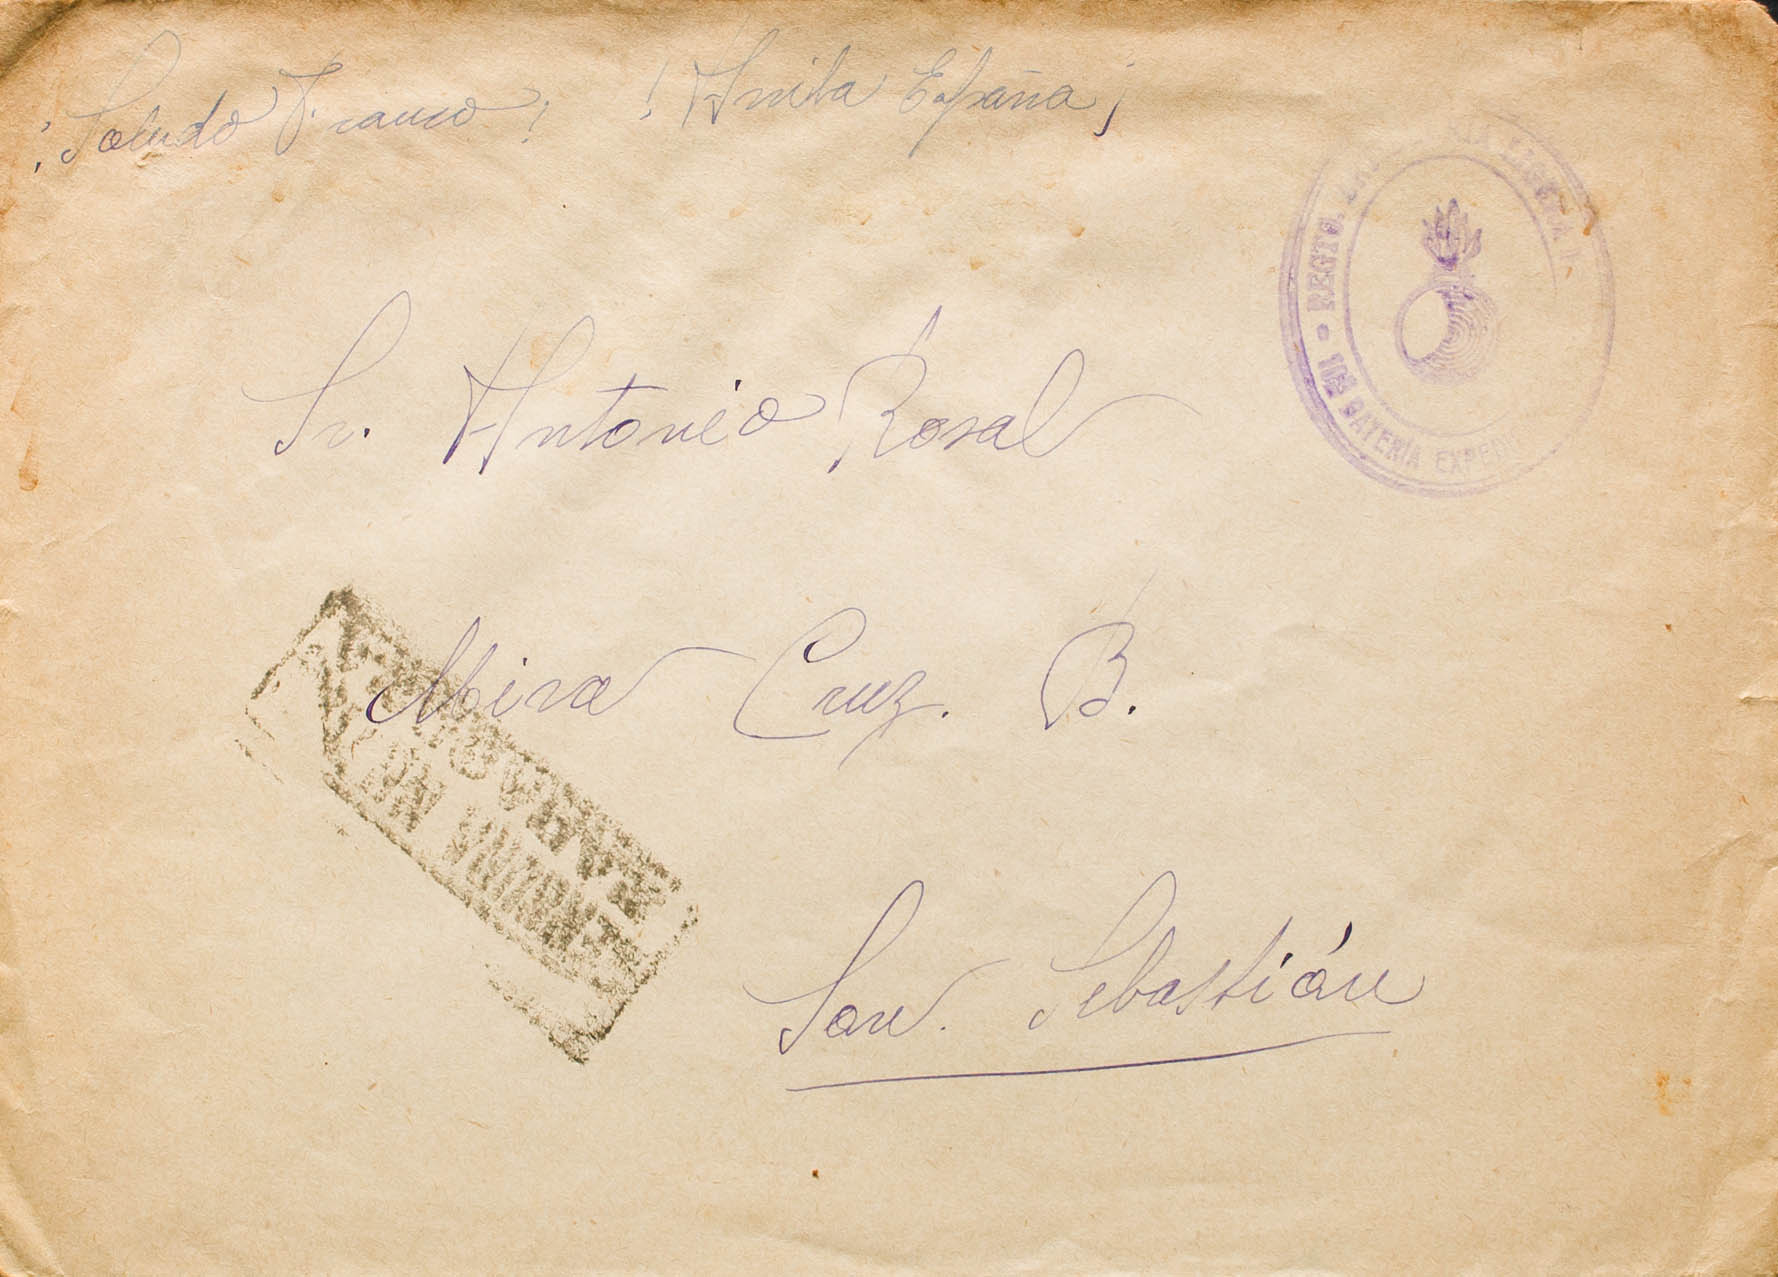 ¡Saludo Franco! ! Arriba España ¡
REGTO. LIGERA
11ª BATERIA
Sr. Antonio Rosal
Mira Cruz. B.
San. Sebastián